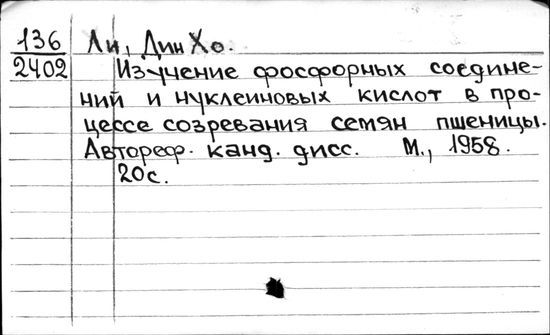 136 Ли, Дин Хо.
2402 Изучение фосфорных соедине-
ний и нуклеиновых кислот в про-
цессе созревания семян пшеницы.
Автореф. канд. дисс. М., 1958.
20с.